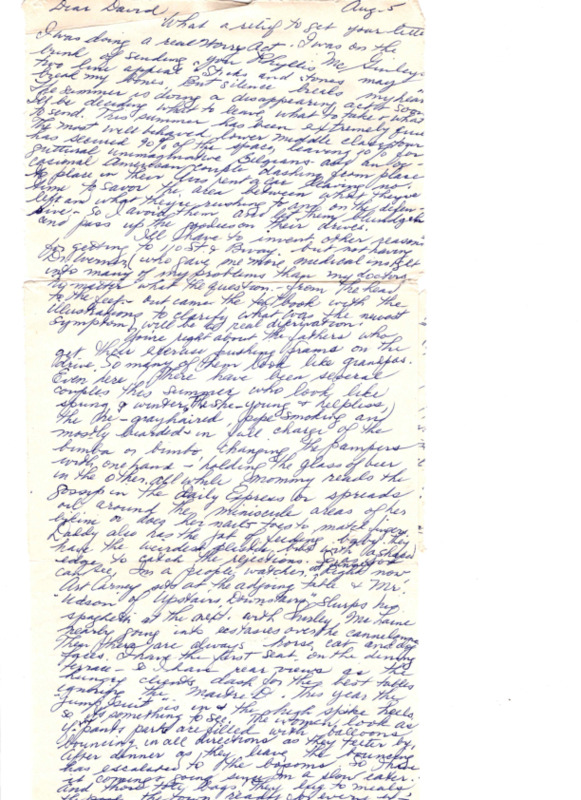 Dear David Aug. 5
What a relief to get your letter
I was doing a real Worry Act. I was on the
brink of sending you Phyllis Mc Ginley's
two line appeal "Sticks and stones may
break my bones But silence breaks my heart
The summer is doing a disappearing act so soon
I'll be deciding what to leave, what to take & what
to send. This summer has been extremely
The most well behaved lower middle class
has secured 90% of the space, leaving 10% for
guttural unimaginative Belgians and an oc-
casional American couple dashing from place
to place in their rent a car leaving no
time to savor the area between what they've
left and what they're rushing to and on the defen-
sive - so I avoid them and let them
and pass up the on their drives.
I'll have to invent other reasons
for getting to but not having
Dr. (who gave me more medical insight
into many of my problems than my doctors.
No matter what the question - from the head
to the feet - out came the textbook with the
illustrations to clarify what was the newest
symptom, will be a real deprivation.
You're right about the fathers who
get their exercise pushing prams on the
drive. So many of them look like grandpas.
Even here there have been several
couples this summer who look like
spring & winter, the she - young & helpless,
the he - grayhaired, pipe smoking and
mostly bearded - in full charge of the
bimba or bimbo. Changing the pampers
with one hand - holding the glass of beer
in the other, all while Mommy reads the
gossip in the Daily Express or spreads
oil around the miniscule areas of her
bikini or does her nails toes to match fingers
Daddy also has the job of feeding baby. They
have the weirdest but with a
edge to catch the rejections. As you
can see, I'm a people watcher. Right now
Art Carney sits at the adjoining table & "Mr.
Hudson of Upstairs, Downstairs" slurps his
spaghetti at the next. with Shirley Mc Laine
nearly going into ecstasies over the cannelloni
Then there are always - horse, cat and dog
faces. I have the first seat on the dining
terrace - so I have rear views as the
hungry clients dash for the best tables
ignoring the Maitre D. This year the
jump suit is in & the high spike heels
so it's something to see. The women look as
if pants are filled with balloons
bouncing in all directions as they teeter by.
After dinner as they leave the bouncing
has escalated to the bosoms, so
is coming & going since I'm a slow eater.
And those tote bags they lug to meals